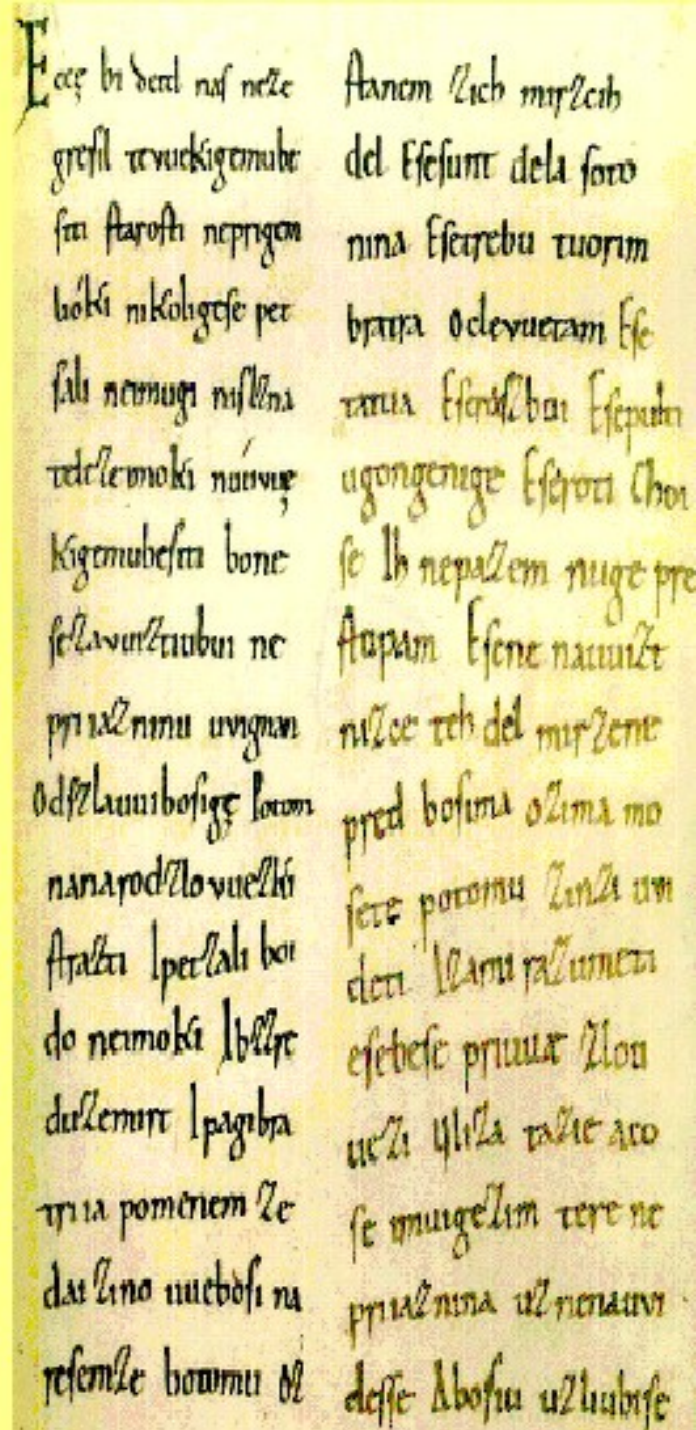 Eccę bi detd naſ neze
greſil tevuekigemube
ſiti ſtaroſti neprigem
lióki nikoligeſe pet
ſali neimugi niſlzna
telezeimoki núúvuę
kigemubeſiti bone
ſezavuiztiubui ne
priiazninu uvignan
Odſzlauuiboſigę Potom
nanarodzlovuezki
ſtrazti Ipetzali boi
do neimoki Ibzzre
duzemirt Ipagibra
triia pomenem ze
dai zino uuebóſi na
reſemze botomu óz
ſtanem zich mirzcih
del Eſeſunt dela ſoto
nina Eſetrebu tuorim
bratra Oclevuetam Eſe
tatua Eſeraſzboi Eſepulti
ugongenige Eſeroti Choi
ſe Ih nepazem nuge pre
ſtopam Eſene nauuizt
nizce teh del mirzene
pred boſima ozima mo
ſete potomu zinzi uvi
deti Izami razumeti
eſebeſe priuuæ zlou
uezi Iiliza tazie aco
ſe imuigezim tere ne
priiaznina uznenauvi
deſſe Aboſiu uzliubiſe